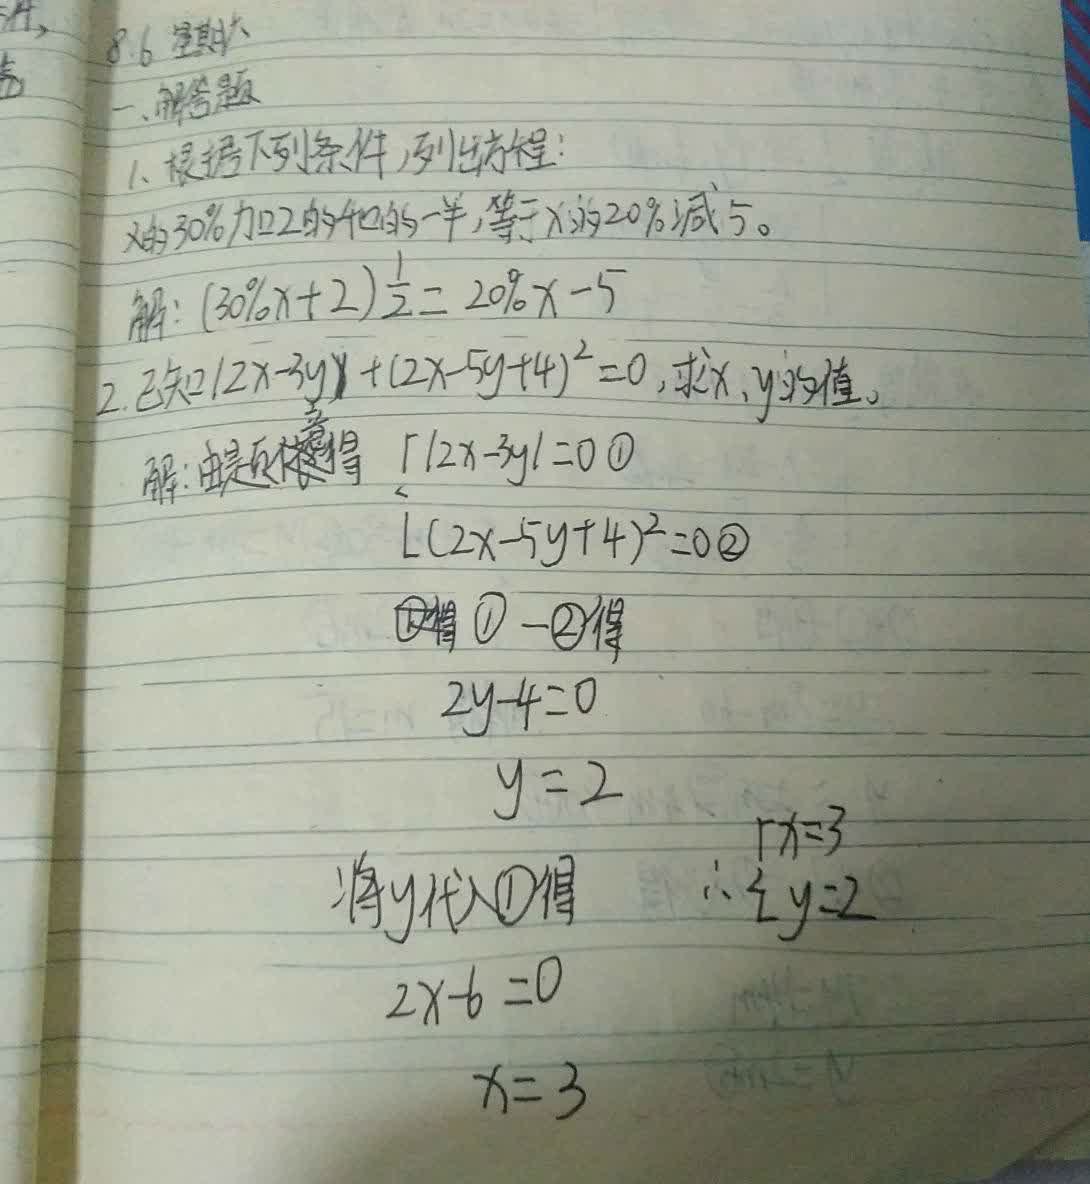 8.6 星期六
一、解答题
1、根据下列条件,列出方程:
x的30%加2的和的一半,等于x的20%减5。
解: (30%x+2)½= 20%x-5
2.已知|2x-3y|+(2x-5y+4)²=0,求x、y的值。
解:由题意得 {|2x-3y|=0①
(2x-5y+4)²=0②
①-②得
2y-4=0
y=2
将y代入①得
2x-6=0
x=3
∴{x=3
y=2